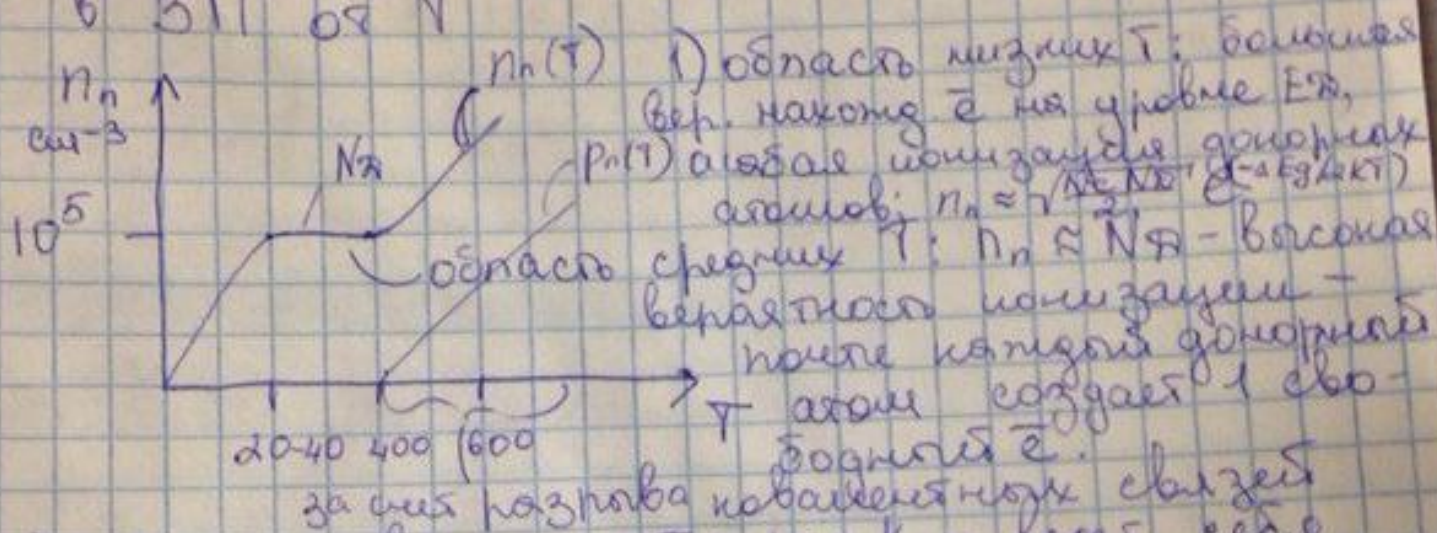 nₙ
см⁻³
10⁵
Nд
nₙ(T)
pₙ(T)
20-40 400 600
T
1) область низких T: большая
вер. нахожд ē на уровне Eд,
слабая ионизация донорных
атомов; nₙ ≈
область средних T: nₙ ≈ Nд - высокая
вероятность ионизации -
почти каждый донорный
атом создает 1 сво-
бодный ē.
за счет разрыва ковалентных связей